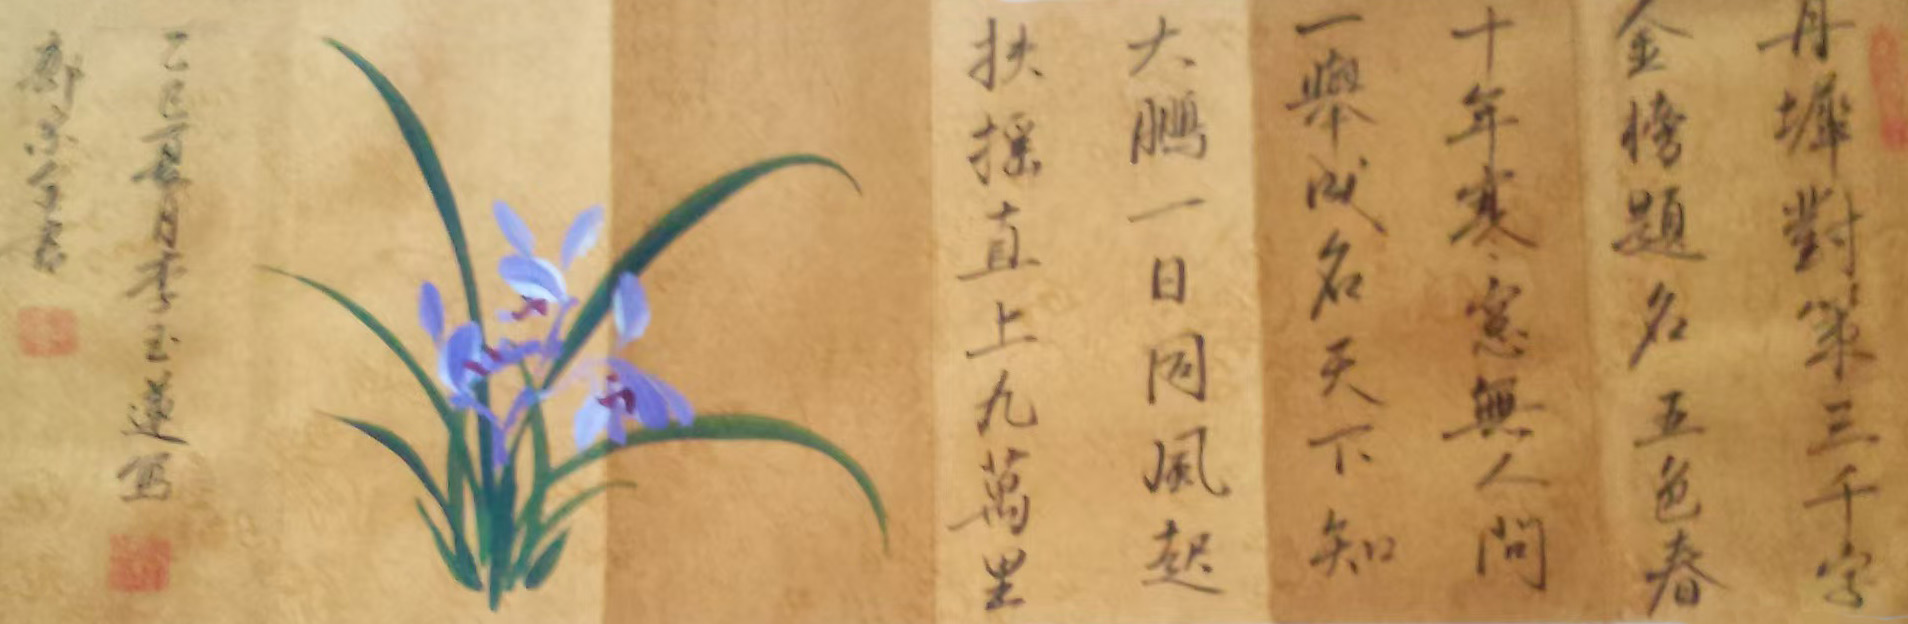 丹墀對策三千字
金榜題名五色春
十年寒窓無人問
一舉成名天下知
大鵬一日同風起
扶搖直上九萬里
乙巳百花月李玉蓮寫